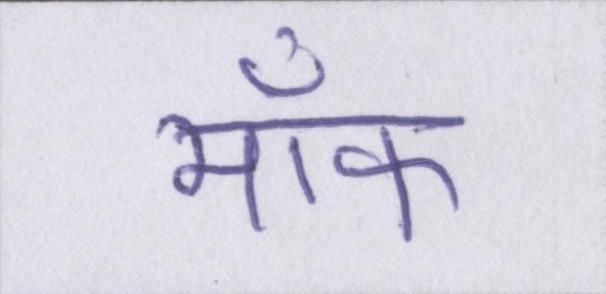 माँक